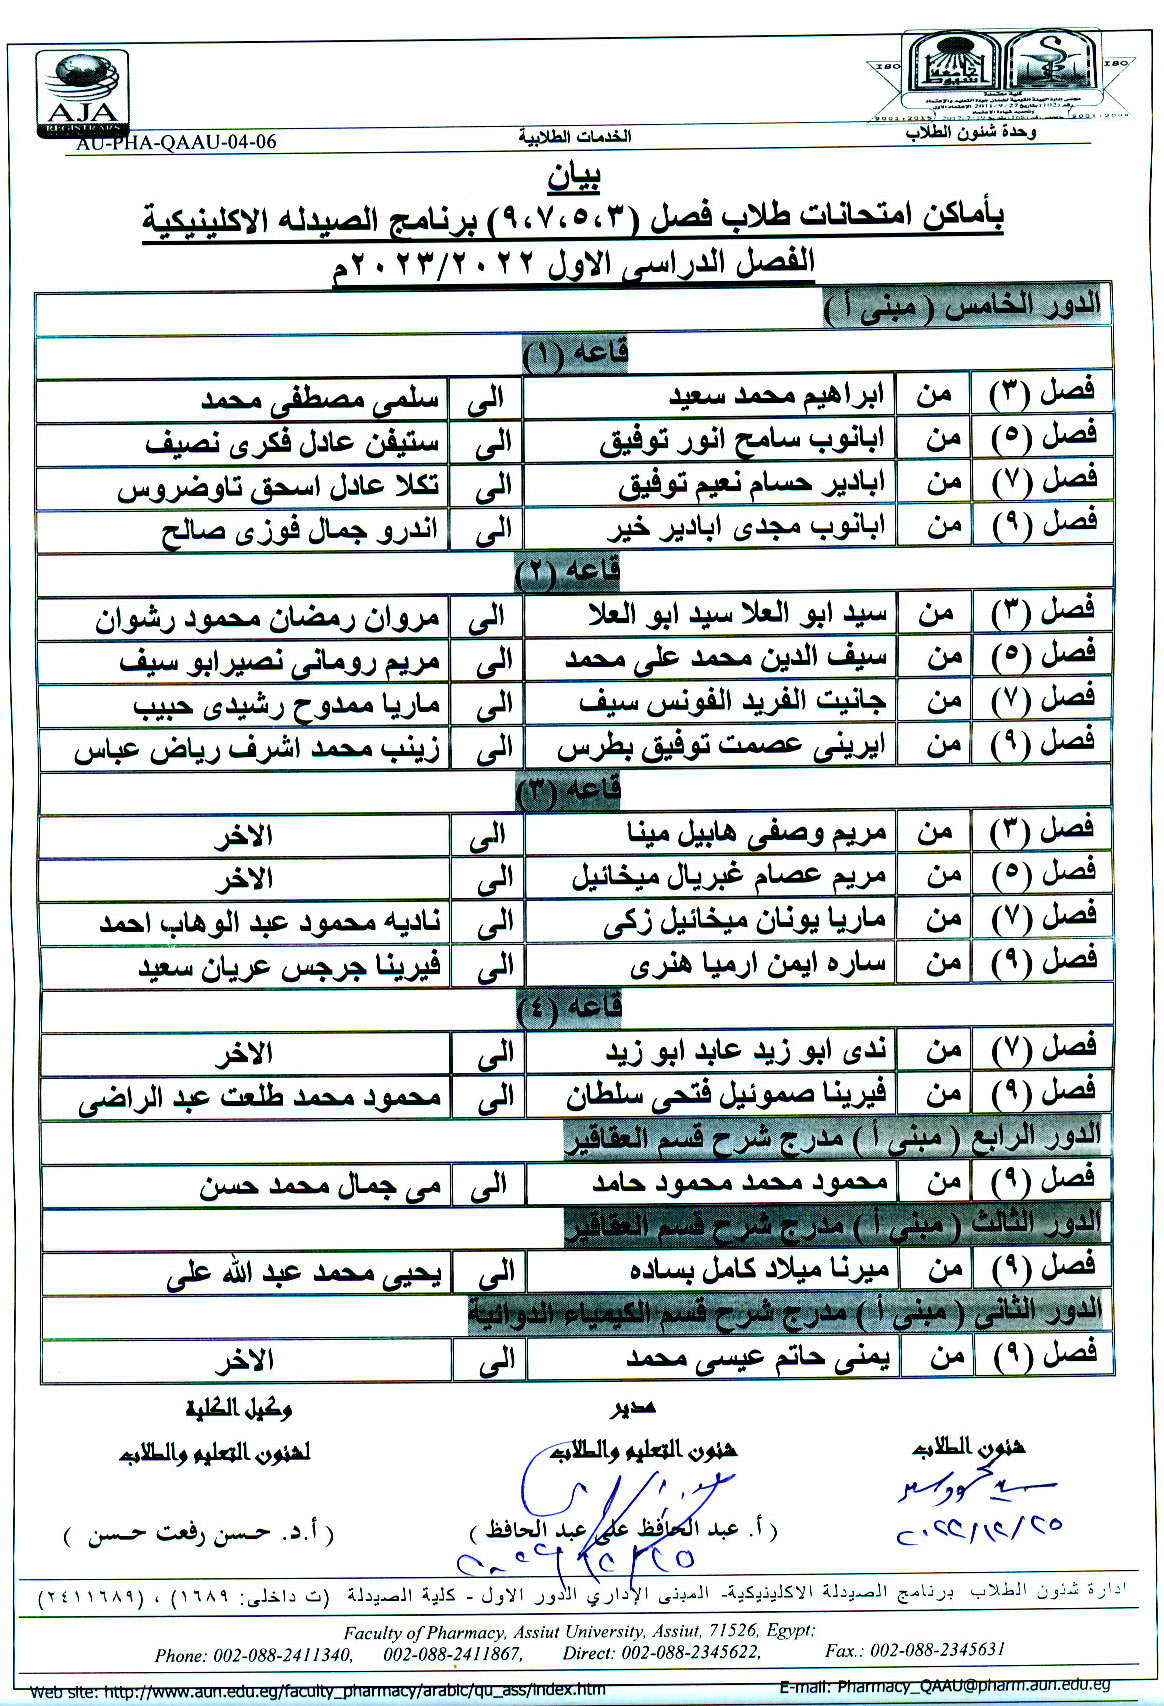 AJA
REGISTRARS
ISO
ISO
وحدة شئون الطلاب
الخدمات الطلابية
AU-PHA-QAAU-04-06
بيان
بأماكن امتحانات طلاب فصل (٩،٧،٥،٣) برنامج الصيدله الاكلينيكية
الفصل الدراسى الاول ٢٠٢٣/٢٠٢٢م
الدور الخامس ( مبنى أ )
قاعه (١)
فصل (٣) من ابراهيم محمد سعيد الى سلمى مصطفى محمد
فصل (٥) من ابانوب سامح انور توفيق الى ستيفن عادل فكرى نصيف
فصل (٧) من ابادير حسام نعيم توفيق الى تكلا عادل اسحق تاوضروس
فصل (٩) من ابانوب مجدى ابادير خير الى اندرو جمال فوزى صالح
قاعه (٢)
فصل (٣) من سيد ابو العلا سيد ابو العلا الى مروان رمضان محمود رشوان
فصل (٥) من سيف الدين محمد على محمد الى مريم رومانى نصيرابو سيف
فصل (٧) من جانيت الفريد الفونس سيف الى ماريا ممدوح رشيدى حبيب
فصل (٩) من ايرينى عصمت توفيق بطرس الى زينب محمد اشرف رياض عباس
قاعه (٣)
فصل (٣) من مريم وصفى هابيل مينا الى الاخر
فصل (٥) من مريم عصام غبريال ميخائيل الى الاخر
فصل (٧) من ماريا يونان ميخائيل زكى الى ناديه محمود عبد الوهاب احمد
فصل (٩) من ساره ايمن ارميا هنرى الى فيرينا جرجس عريان سعيد
قاعه (٤)
فصل (٧) من ندى ابو زيد عابد ابو زيد الى الاخر
فصل (٩) من فيرينا صموئيل فتحى سلطان الى محمود محمد طلعت عبد الراضى
الدور الرابع ( مبنى أ ) مدرج شرح قسم العقاقير
فصل (٩) من محمود محمد محمود حامد الى مى جمال محمد حسن
الدور الثالث ( مبنى أ ) مدرج شرح قسم العقاقير
فصل (٩) من ميرنا ميلاد كامل بساده الى يحيى محمد عبد الله على
الدور الثانى ( مبنى أ ) مدرج شرح قسم الكيمياء الدوائية
فصل (٩) من يمنى حاتم عيسى محمد الى الاخر
شئون الطلاب
مدير
شئون التعليم والطلاب
وكيل الكلية
لشئون التعليم والطلاب
٢٠٢٢/١٢/٢٥
( أ. عبد الحافظ على عبد الحافظ )
٢٠٢٢/١٢/٢٥
( أ.د. حسن رفعت حسن )
ادارة شئون الطلاب برنامج الصيدلة الاكلينيكية- المبنى الإداري الدور الاول - كلية الصيدلة (ت داخلى: ١٦٨٩) ، (٢٤١١٦٨٩)
Faculty of Pharmacy, Assiut University, Assiut, 71526, Egypt;
Phone: 002-088-2411340, 002-088-2411867, Direct: 002-088-2345622, Fax.: 002-088-2345631
Web site: http://www.aun.edu.eg/faculty_pharmacy/arabic/qu_ass/index.htm E-mail: Pharmacy_QAAU@pharm.aun.edu.eg